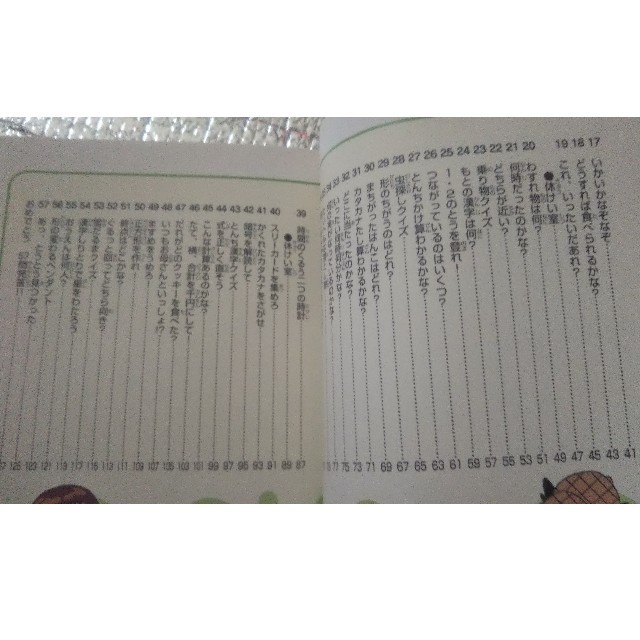 17 いかいかなぞなぞ 41
18 どうすれば食べられるかな? 43
19 これ、いったいだあれ? 45
●休けい室 47
20 わすれ物は何? 49
21 何時だったのかな? 51
22 どちらが近い? 53
23 乗り物クイズ 55
24 もとの漢字は何? 57
25 1・2のとうを登れ! 59
26 つながっているのはいくつ? 61
27 とんちかけ算わかるかな? 63
28 虫探しクイズ 65
29 形のちがうのはどれ? 67
30 まちがったはんこはどれ? 69
31 カタカナたし算わかるかな? 71
39 時間のくるう二つの時計 87
●休けい室 89
40 スリーカードを集めろ 91
41 かくれたカタカナをさがせ 93
42 暗号を解読して 95
43 とんち漢字クイズ 97
44 式を正しく直そう 99
45 こんな計算あるのかな? 101
46 たて、横、合計を千円にして 103
47 だれがどのクッキーを食べた? 105
48 いつもお母さんといっしょ!? 107
49 ますめをうめろ! 109
50 正方形を作れ! 111
51 終点はどこかな? 113
52 ぐるっと回ってどちら向き?
53 雪だるまクイズ
54 漢字しりとりで星をわたろう 117
55 おうえんは何人? 119
56 形の変わるペンダント 121
57 あっ、とうとう見つかった
おめでとう、57問突破!!